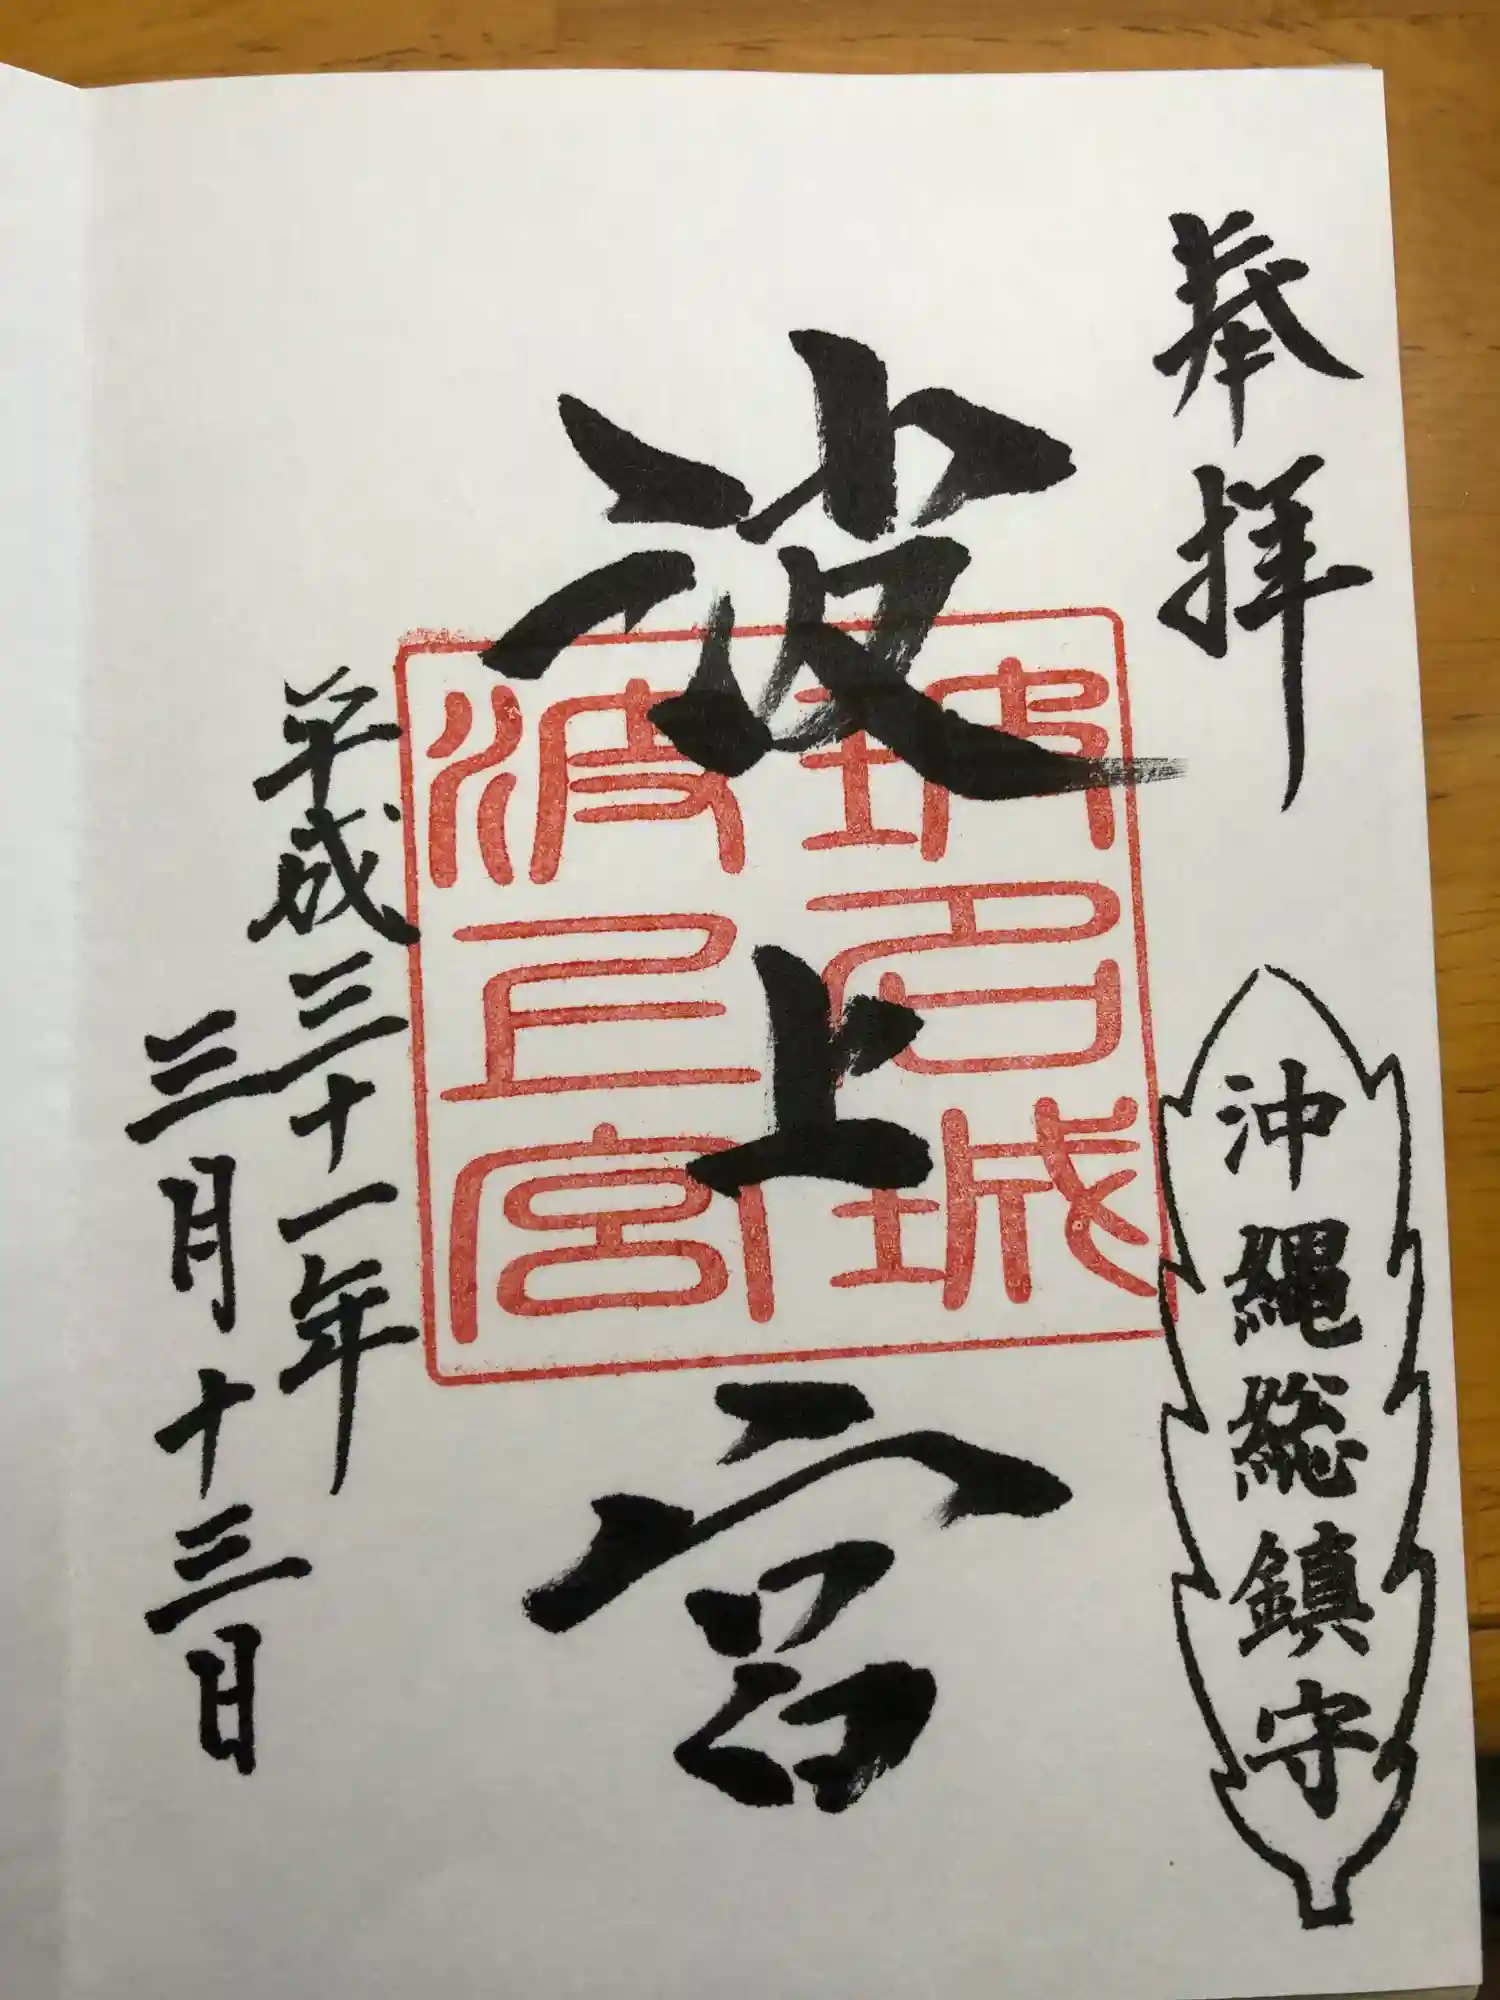 奉拝
沖縄総鎮守
波上宮
平成三十一年
三月十三日
波上宮